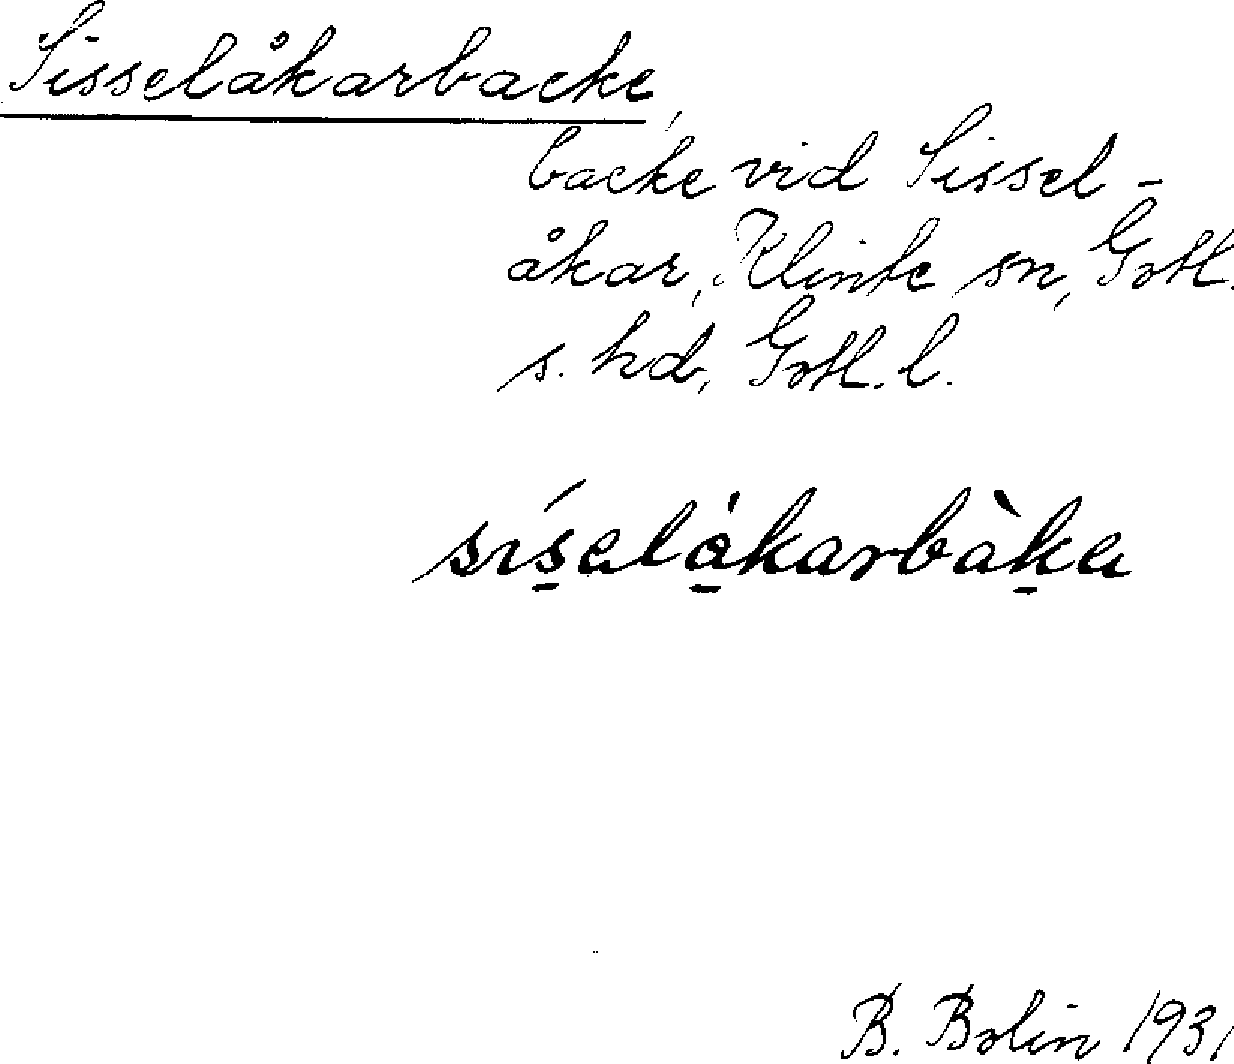 Sisselåkarbacke,
backe vid Sissel-
åkar, Klinte sn, Gotl.
s. hd, Gotl. l.
sís̠alȧ̠karbàk̠a
B. Bolin 1931